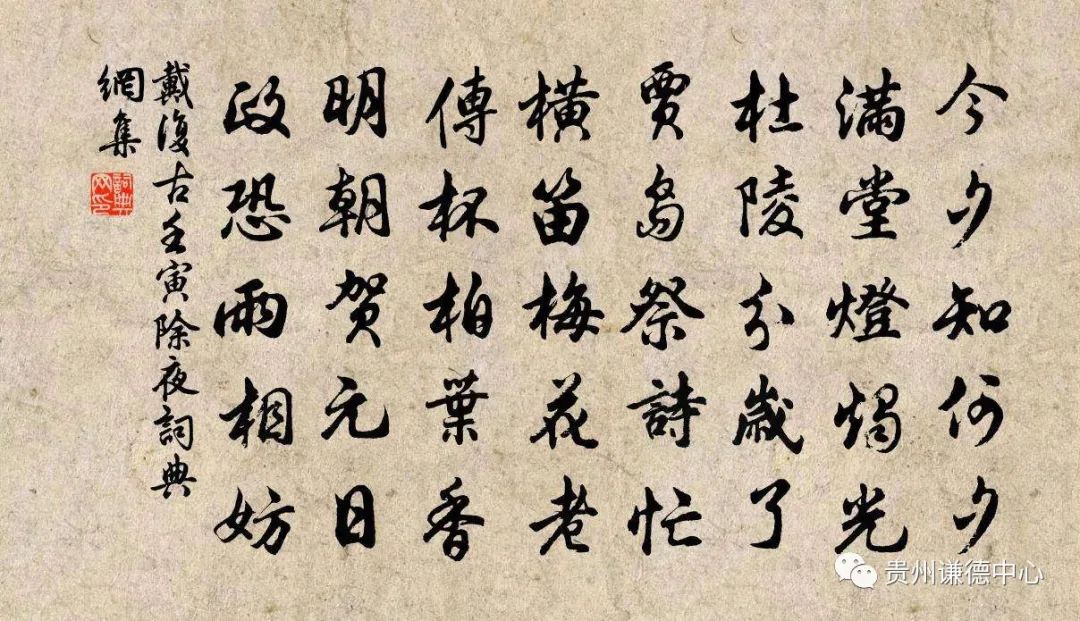 今夕知何夕
滿堂燈燭光
杜陵分歲了
賈島祭詩忙
橫笛梅花老
傳杯柏葉香
明朝賀元日
政恐雨相妨
戴復古壬寅除夜詞典
網集
詞典
网印
贵州谦德中心